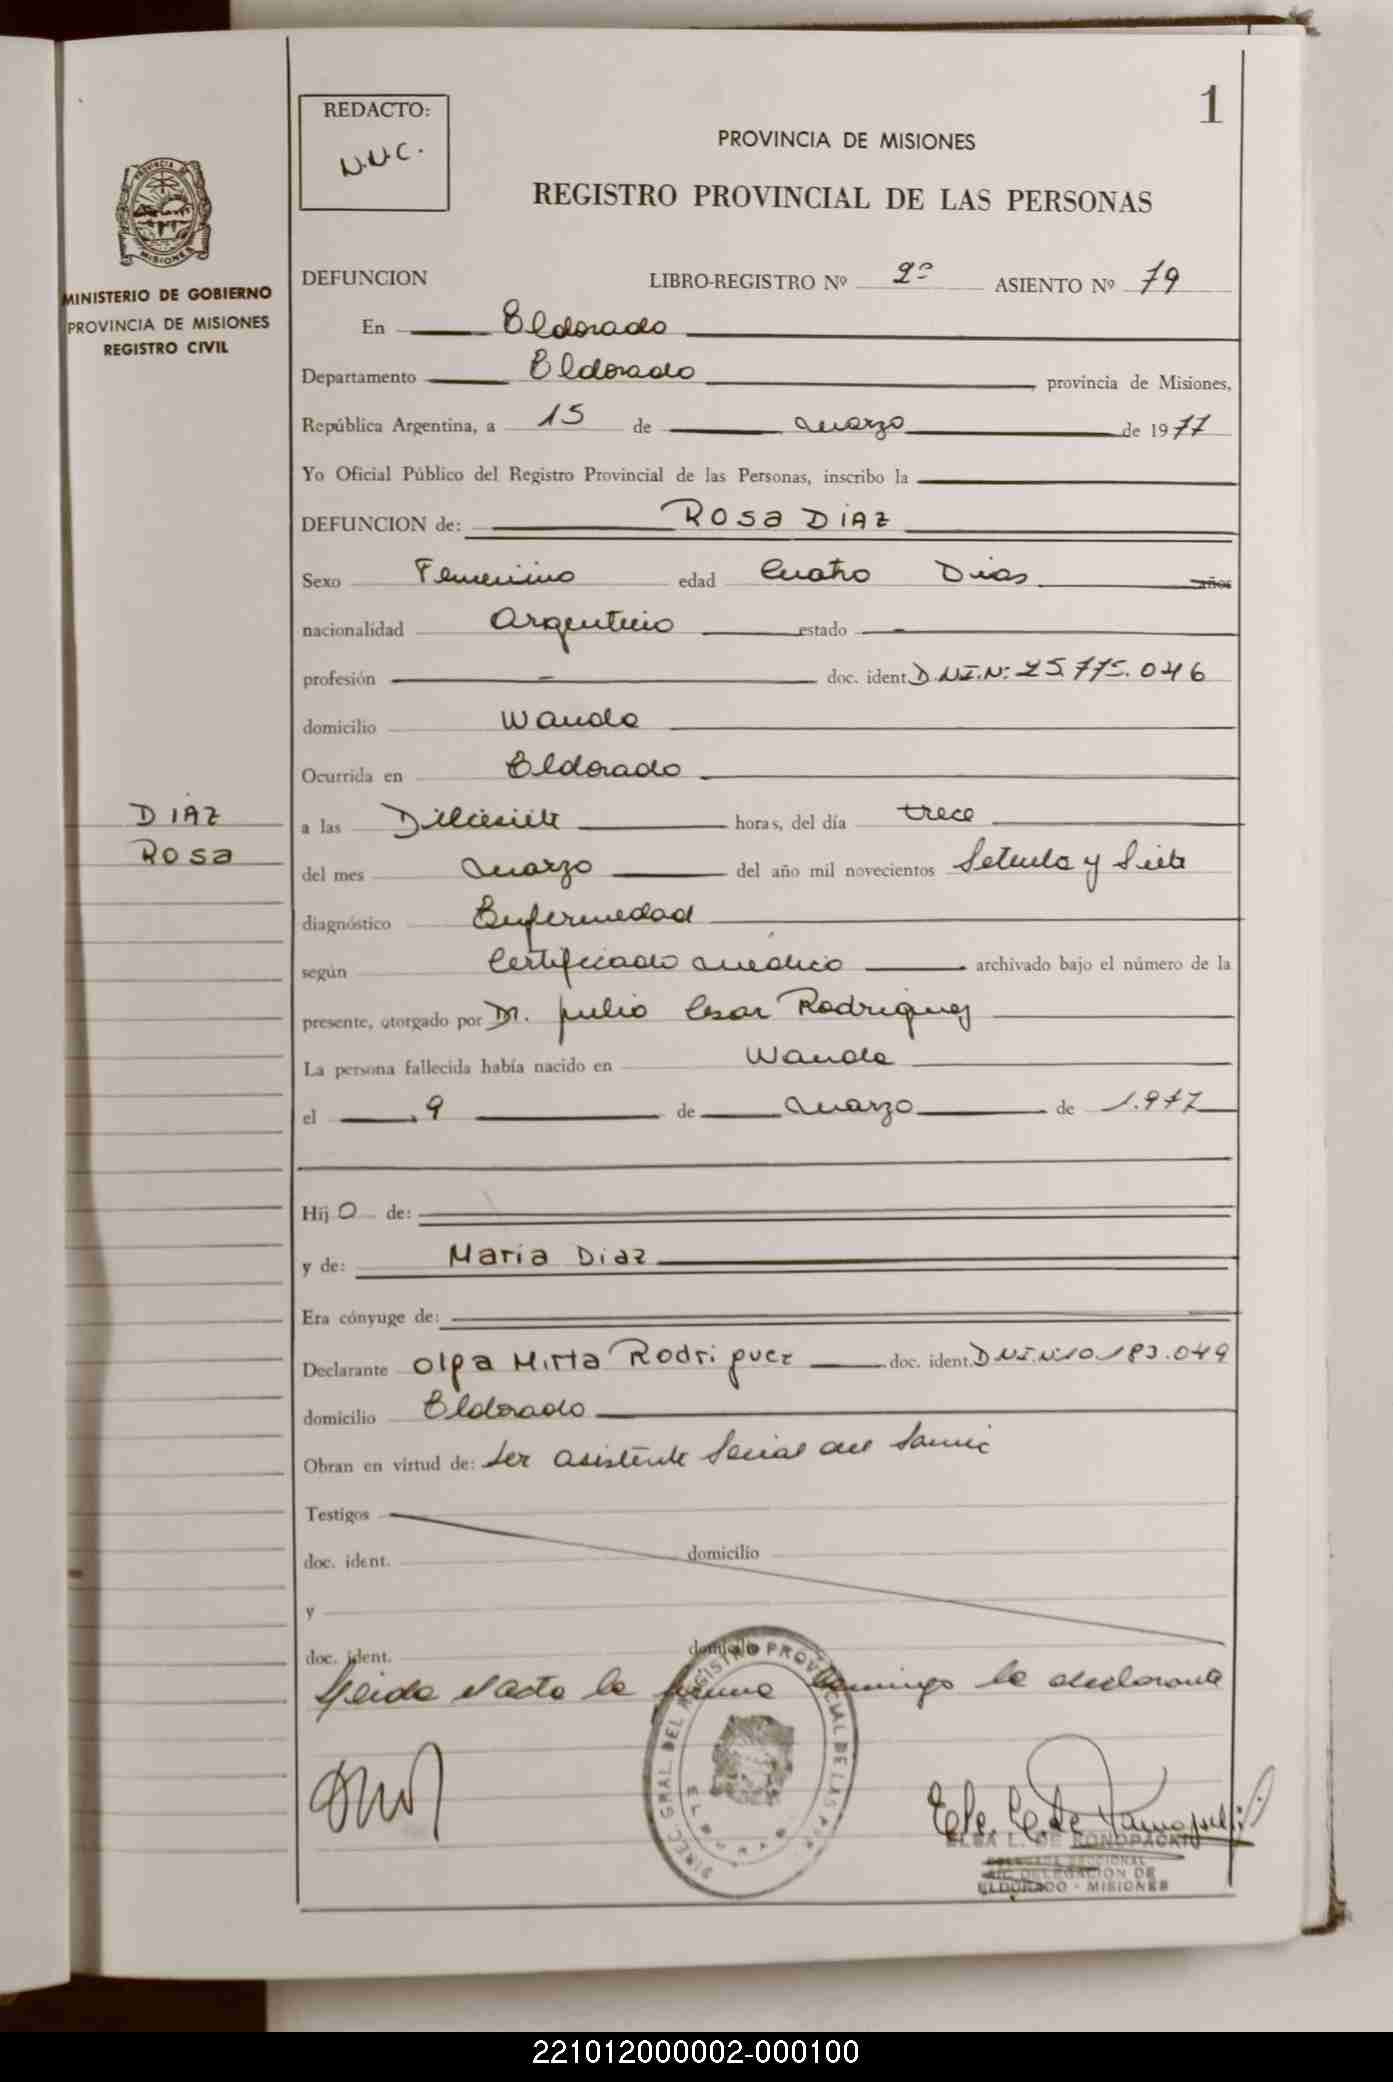 1
REDACTO:
N.N.C.
PROVINCIA DE MISIONES
REGISTRO PROVINCIAL DE LAS PERSONAS
MISIONES
MINISTERIO DE GOBIERNO
PROVINCIA DE MISIONES
REGISTRO CIVIL
DEFUNCION LIBRO-REGISTRO Nº 2º ASIENTO Nº 79
En Eldorado
Departamento Eldorado, provincia de Misiones,
República Argentina, a 15 de marzo de 1977
Yo Oficial Público del Registro Provincial de las Personas, inscribo la
DEFUNCION de: ROSA DIAZ
Sexo Femenino edad Cuatro Dias años
nacionalidad Argentino estado -
profesión - doc. ident. D.N.I.Nº 25.775.046
domicilio Wanda
Ocurrida en Eldorado
DIAZ
ROSA
a las Diecisiete horas, del día trece
del mes marzo del año mil novecientos Setenta y Siete
diagnóstico Enfermedad
según Certificado medico archivado bajo el número de la
presente, otorgado por Dr. Julio Cesar Rodriguez
La persona fallecida había nacido en Wanda
el 9 de marzo de 1.977
Hij o de:
y de: Maria Diaz
Era cónyuge de:
Declarante Olga Mirta Rodriguez doc. ident. D.N.I.Nº 10.183.049
domicilio Eldorado
Obran en virtud de: Ser Asistente Social del Samic
Testigos
doc. ident. domicilio
y
doc. ident. domicilio
Leida el acta la firma conmigo la declarante
DIREC. GRAL. DEL REGISTRO PROVINCIAL DE LAS PER
ELSA L. DE KONOPACKI
DELEGADA SECCIONAL
DELEGACION DE
ELDORADO - MISIONES
221012000002-000100